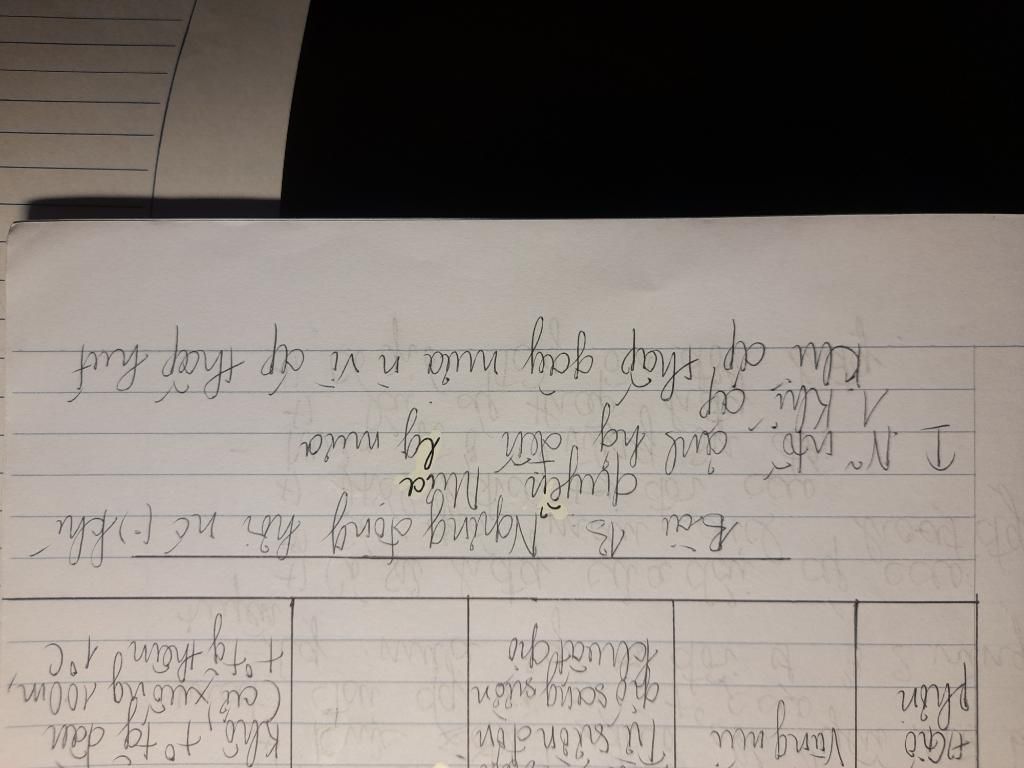 +Gió
phơn
Vùng núi
Từ sườn đón
gió sang sườn
khuất gió
Khô, t° tg dần
(cứ xuống 100m,
t° tg thêm 1°C
Bài 13 Ngưng đọng hơi nc (-) khí
quyển Mưa
I Nx ntố ảnh hg đến lg mưa
1 Khí áp
Khu áp thấp gây mưa n vì áp thấp hút